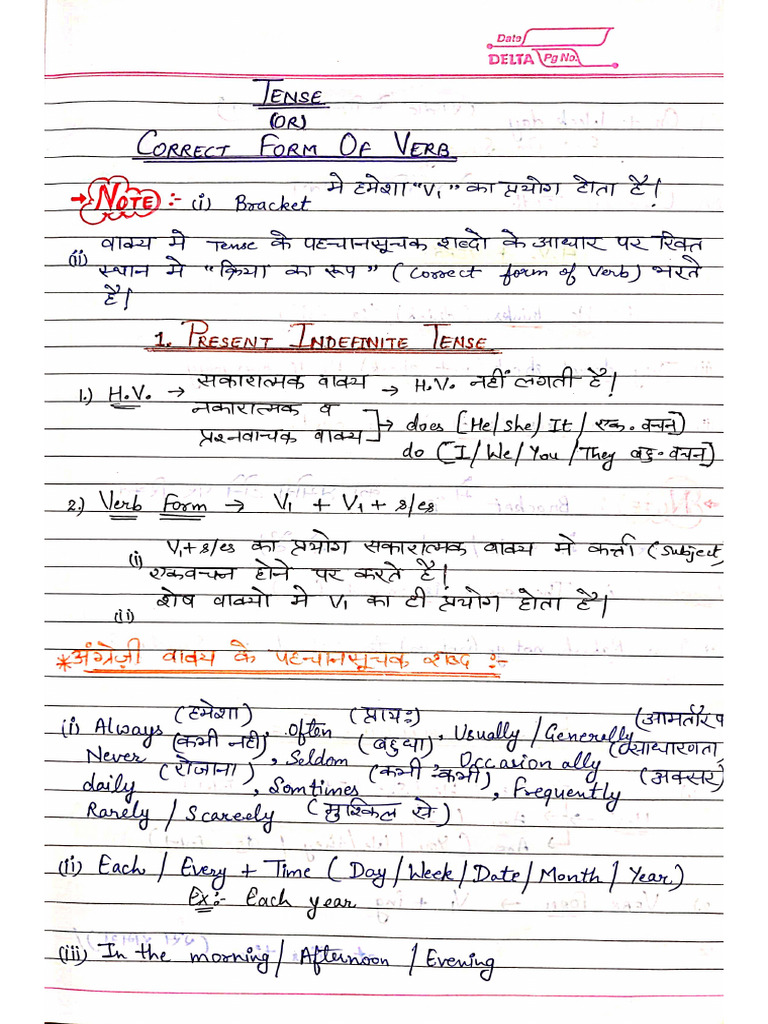 Date
DELTA Pg No.
TENSE
(OR)
CORRECT FORM OF VERB
NOTE :- (i) Bracket मे हमेशा "V1" का प्रयोग होता है।
(ii) वाक्य मे Tense के पहचानसूचक शब्दो के आधार पर रिक्त
स्थान मे "क्रिया का रूप" (Correct form of Verb) भरते
है।
1. PRESENT INDEFINITE TENSE
1.) H.V. → सकारात्मक वाक्य → H.V. नहीं लगती है।
नकारात्मक व
प्रश्नवाचक वाक्य → does [He/She/It/एक.वचन]
do [I/We/You/They बहु.वचन]
2.) Verb Form → V1 + V1 + s/es
(i) V1+s/es का प्रयोग सकारात्मक वाक्य मे कर्त्ता (Subject)
एकवचन होने पर करते है।
(ii) शेष वाक्यो मे V1 का ही प्रयोग होता है।
*अंग्रेज़ी वाक्य के पहचानसूचक शब्द :-
(i) Always (हमेशा), Often (प्रायः), Usually/Generally (आमतौर प
Never (कभी नही), Seldom (बहुधा), Occasionally (साधारणता
daily (रोजाना), Somtimes (कभी-कभी), Frequently (अक्सर)
Rarely/Scarecly (मुश्किल से)
(ii) Each/Every + Time (Day/Week/Date/Month/Year)
Ex:- Each year
(iii) In the morning/Afternoon/Evening